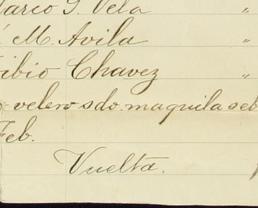 Marco G. Vela "
M. Avila "
ibio Chavez "
velero sdo. maquila seb
Feb.
Vuelta.